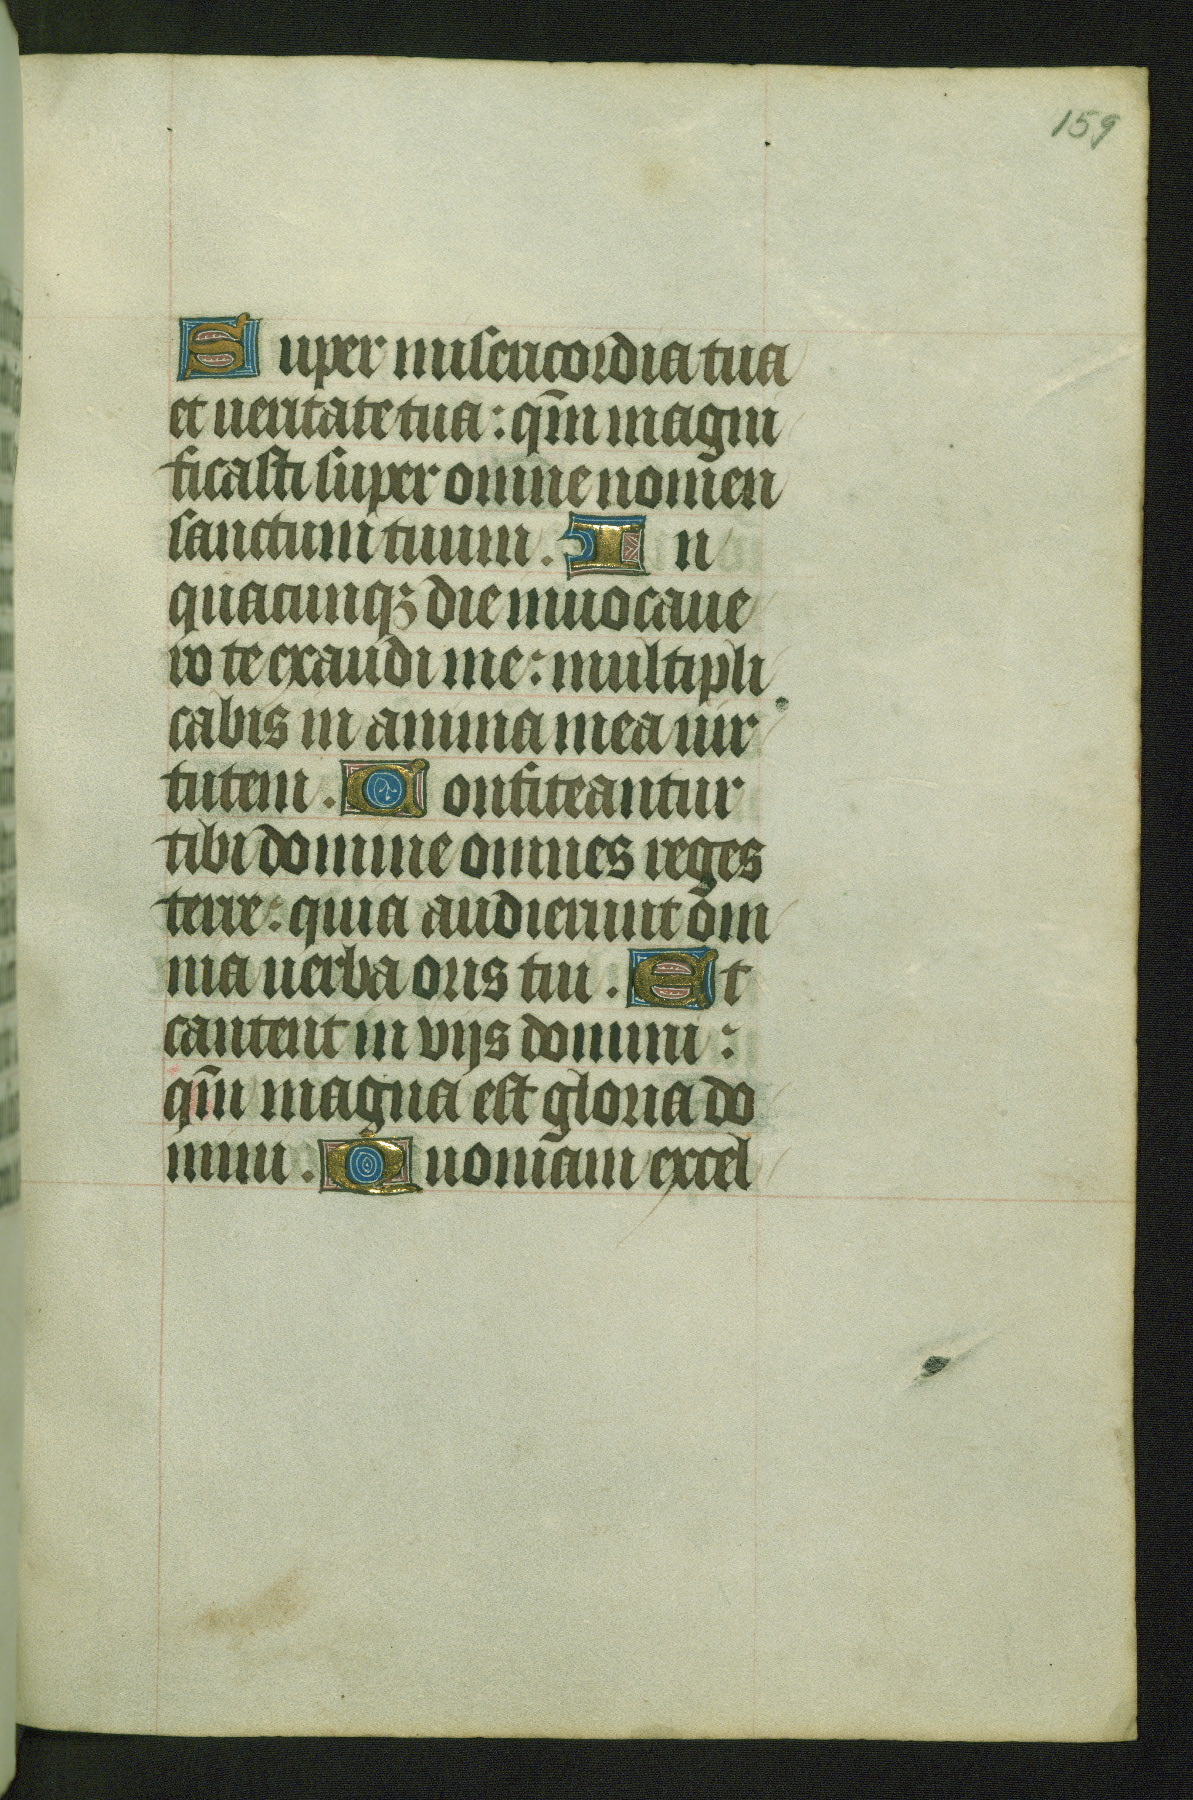 159
Super misericordia tua
et ueritate tua : qm̄ magni
ficasti super omne nomen
sanctum tuum . In
quacunqꝫ die inuocaue
ro te exaudi me : multipli
cabis in anima mea uir
tutem . Confiteantur
tibi domine omnes reges
terre : quia audierunt om̄
nia uerba oris tui . Et
cantent in vijs domini :
qm̄ magna est gloria do
mini . Quoniam excel